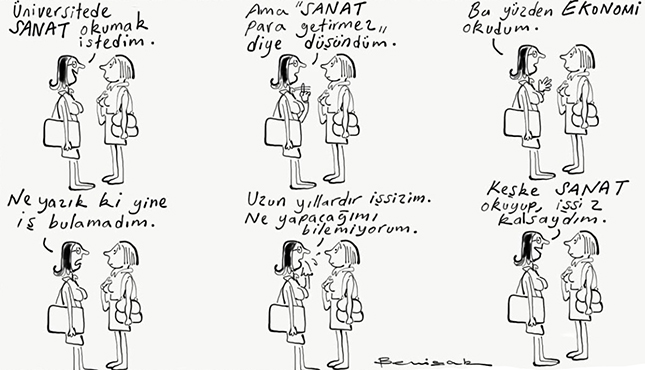 Üniversitede
SANAT okumak
istedim.
Ama "SANAT
para getirmez"
diye düşündüm.
Bu yüzden EKONOMİ
okudum.
Ne yazık ki yine
iş bulamadım.
Uzun yıllardır işsizim.
Ne yapacağımı
bilemiyorum.
Keşke SANAT
okuyup, işsiz
kalsaydım.